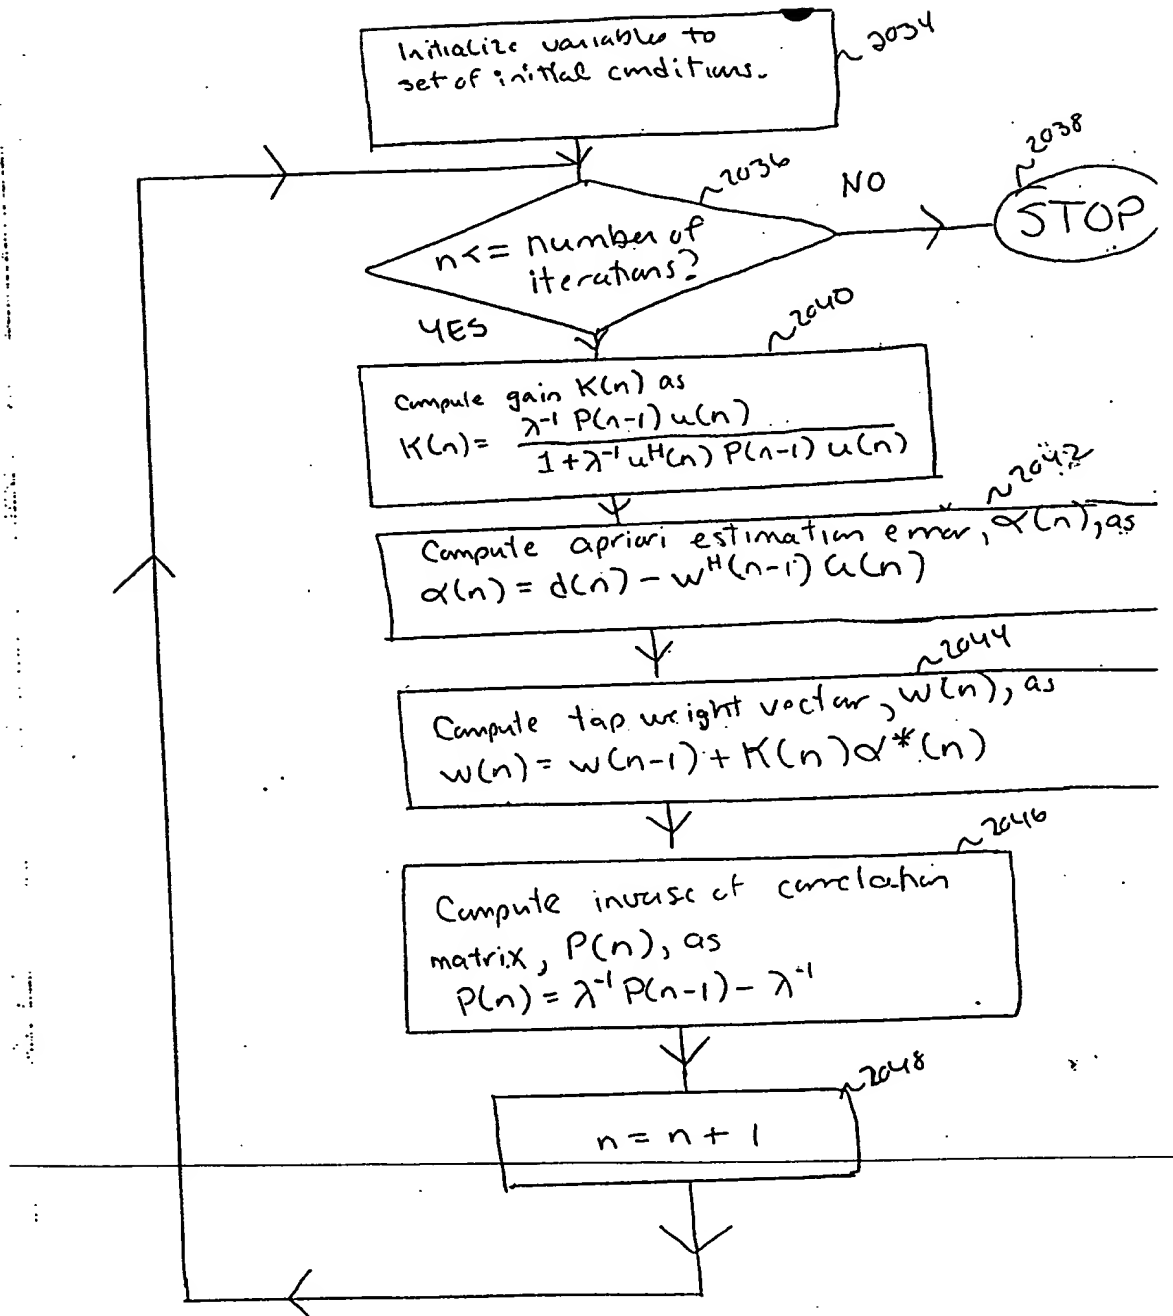 Initialize variables to
set of initial conditions.
~2034
n <= number of
iterations?
~2036
NO
STOP
~2038
YES
~2040
Compute gain K(n) as
K(n) = λ⁻¹ P(n-1) u(n)
1 + λ⁻¹ uᴴ(n) P(n-1) u(n)
~2042
Compute apriori estimation error, α(n), as
α(n) = d(n) - wᴴ(n-1) u(n)
~2044
Compute tap weight vector, w(n), as
w(n) = w(n-1) + K(n) α*(n)
~2046
Compute inverse of correlation
matrix, P(n), as
P(n) = λ⁻¹ P(n-1) - λ⁻¹
~2048
n = n + 1